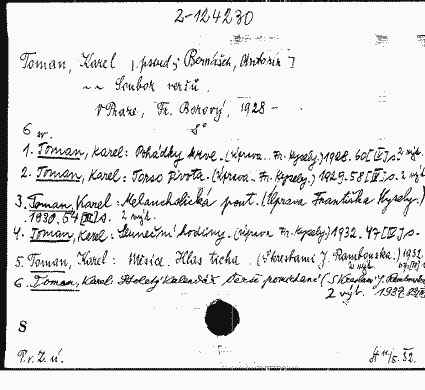 2-124230
Toman, Karel [pseud; Bernášek, Antonín]
~~ Soubor veršů.
V Praze, Fr. Borový, 1928 -
6 sv. 8°
1. Toman, Karel: Pohádky krve. (Úprava Fr. Kysely.) 1928. 60 [IV] s. 2 výt.
2. Toman, Karel: Torso života. (Úprava Fr. Kysely.) 1929. 58 [IV] s. 2 výt.
3. Toman, Karel: Melancholická pout. (Úprava Františka Kysely.)
1930. 54 [III] s. 2 výt.
4. Toman, Karel: Sluneční hodiny. (Úprava Fr. Kysely) 1932. 47 [IV] s.
5. Toman, Karel: Měsíce. Hlas ticha. (S kresbami J. Rambouska.) 1932
2 výt.
6. Toman, Karel: Stoletý kalendář. Verše pomíchané (S
2 výt. 1937.
8
P. v. Z. ú. 11/5. 32.